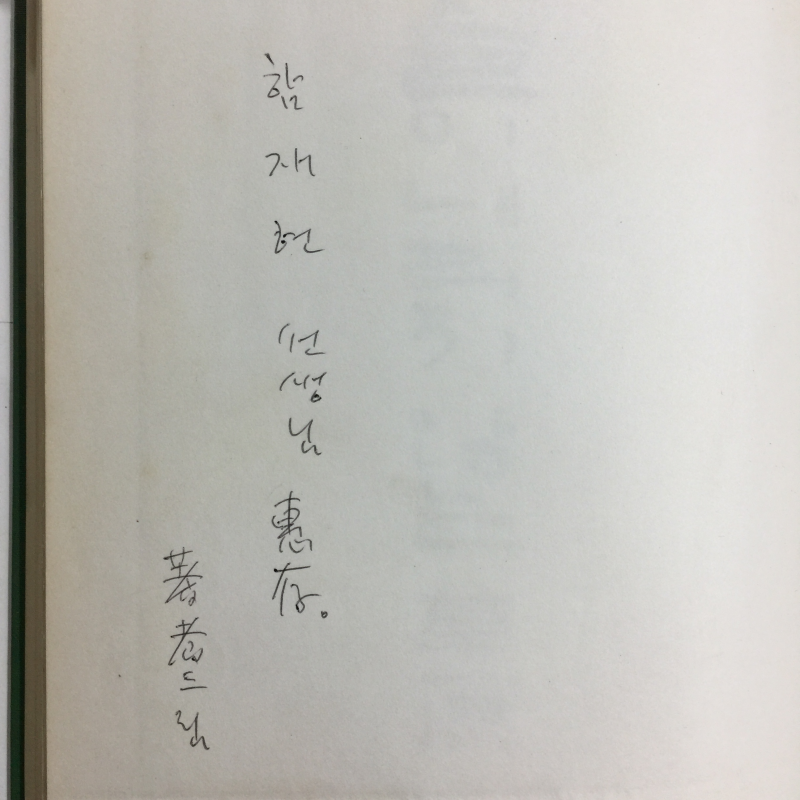 함재현 선생님 惠存。
著者드림